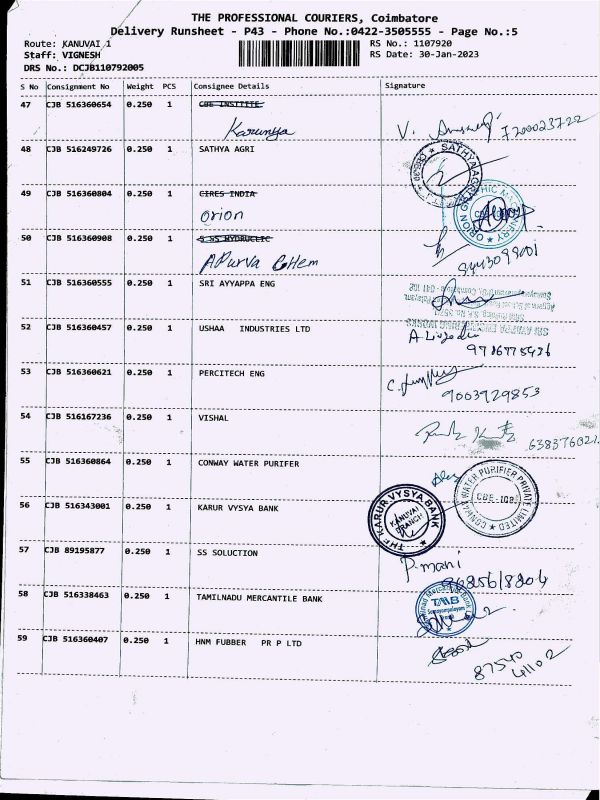 THE PROFESSIONAL COURIERS, Coimbatore
Delivery Runsheet - P43 - Phone No.:0422-3505555 - Page No.:5
Route: KANUVAI 1 RS No.: 1107920
Staff: VIGNESH RS Date: 30-Jan-2023
DRS No.: DCJB110792005
S No Consignment No Weight PCS Consignee Details Signature
47 CJB 516360654 0.250 1 CBE INSTITTE
Karunya V. 7200023722
48 CJB 516249726 0.250 1 SATHYA AGRI
SATHYA AGRI
49 CJB 516360804 0.250 1 CIRES INDIA
Orion
ORION GRAPHIC MACHINERY
50 CJB 516360908 0.250 1 S SS HYDRUCLIC
APurva CHem
51 CJB 516360555 0.250 1 SRI AYYAPPA ENG
SRI AYYAPPA ENGINEERING WORKS
52 CJB 516360457 0.250 1 USHAA INDUSTRIES LTD
53 CJB 516360621 0.250 1 PERCITECH ENG
9003929853
54 CJB 516167236 0.250 1 VISHAL
55 CJB 516360864 0.250 1 CONWAY WATER PURIFER
CONWAY WATER PURIFIER PRIVATE LIMITED
CBE-108
56 CJB 516343001 0.250 1 KARUR VYSYA BANK
THE KARUR VYSYA BANK
KANUVAI BRANCH
57 CJB 89195877 0.250 1 SS SOLUCTION
P. mani
58 CJB 516338463 0.250 1 TAMILNADU MERCANTILE BANK
TMB
59 CJB 516360407 0.250 1 HNM FUBBER PR P LTD
87540
41102